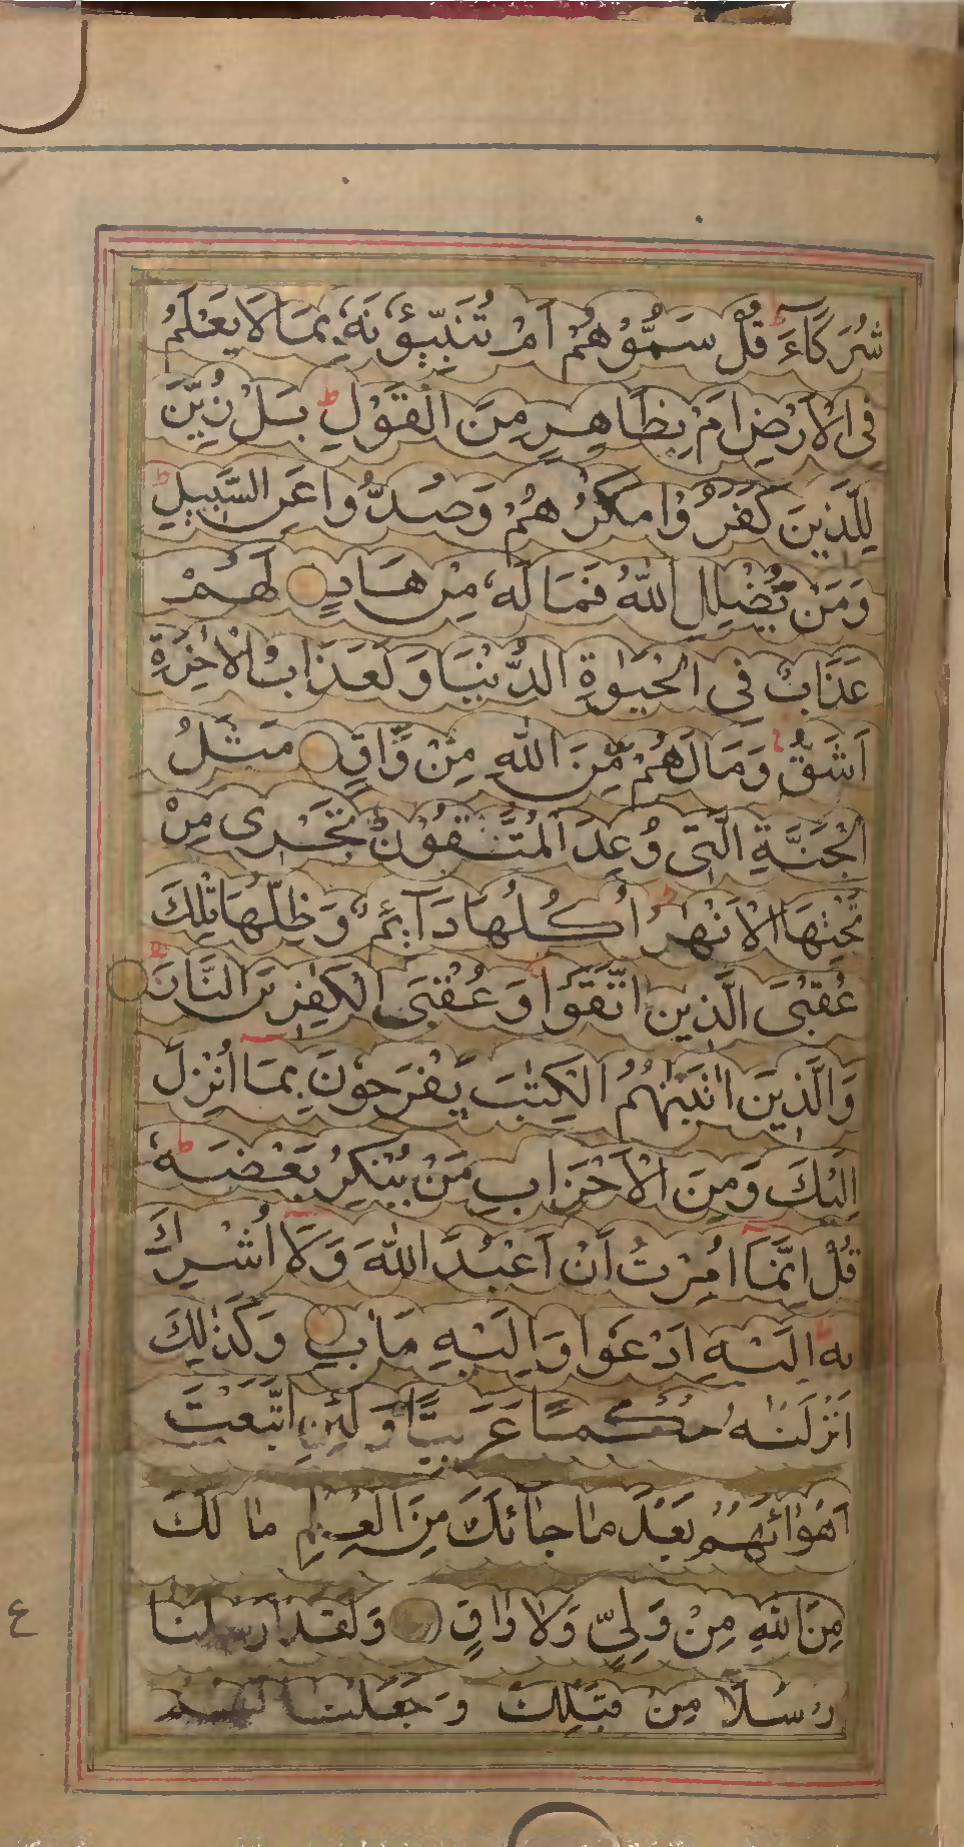 شُرَكَآءَ قُلْ سَمُّوْهُمْ اَمْ تُنَبِّـُٔوْنَهٗ بِمَا لَا يَعْلَمُ
فِى الْاَرْضِ اَمْ بِظَاهِرٍ مِنَ الْقَوْلِ ط بَلْ زُيِّنَ
لِلَّذِينَ كَفَرُوْا مَكْرُهُمْ وَصُدُّوا عَنِ السَّبِيلِ ط
وَمَنْ يُضْلِلِ اللّٰهُ فَمَا لَهٗ مِنْ هَادٍ لَهُمْ
عَذَابٌ فِى الْحَيٰوةِ الدُّنْيَا وَلَعَذَابُ الْاٰخِرَةِ
اَشَقُّ وَمَا لَهُمْ مِّنَ اللّٰهِ مِنْ وَّاقٍ مَثَلُ
الْجَنَّةِ الَّتِى وُعِدَ الْمُتَّقُوْنَ ط تَجْرِى مِنْ
تَحْتِهَا الْاَنْهٰرُ ط اُكُلُهَا دَآئِمٌ وَظِلُّهَا تِلْكَ
عُقْبَى الَّذِينَ اتَّقَوْا وَعُقْبَى الْكٰفِرِينَ النَّارَ
وَالَّذِينَ اٰتَيْنٰهُمُ الْكِتٰبَ يَفْرَحُوْنَ بِمَا اُنْزِلَ
اِلَيْكَ وَمِنَ الْاَحْزَابِ مَنْ يُنْكِرُ بَعْضَهٗ ط
قُلْ اِنَّمَا اُمِرْتُ اَنْ اَعْبُدَ اللّٰهَ وَلَا اُشْرِكَ
بِهِ اِلَيْهِ اَدْعُوا وَاِلَيْهِ مَاٰبِ وَكَذٰلِكَ
اَنْزَلْنٰهُ حُكْمًا عَرَبِيًّا وَلَئِنِ اتَّبَعْتَ
اَهْوَائَهُمْ بَعْدَ مَا جَائَكَ مِنَ الْعِلْمِ مَا لَكَ
مِنَ اللّٰهِ مِنْ وَلِىٍّ وَلَا وَاقٍ وَلَقَدْ اَرْسَلْنَا
ع
رُسُلًا مِنْ قَبْلِكَ وَجَعَلْنَا لَهُمْ